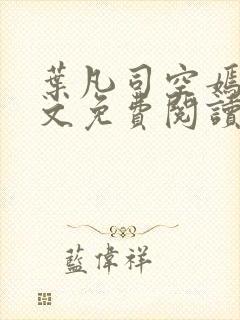 葉凡司空嫣
文免費閱讀
藍偉祥